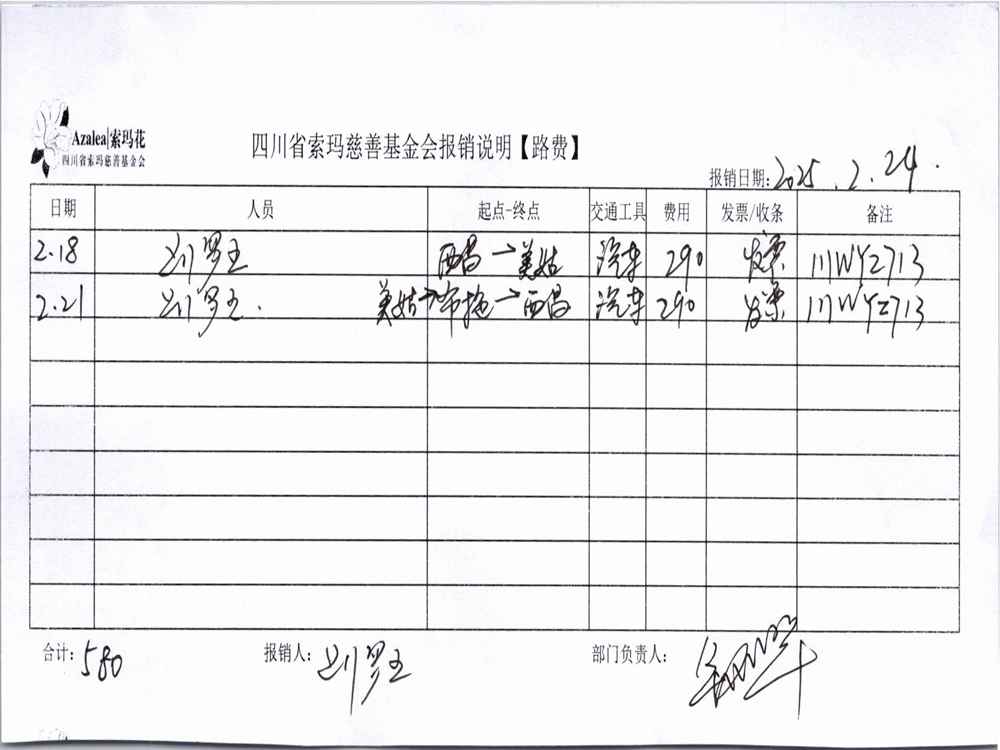 Azalea|索玛花
四川省索玛慈善基金会
四川省索玛慈善基金会报销说明【路费】
报销日期:2025.2.24.
日期 人员 起点-终点 交通工具 费用 发票/收条 备注
2.18 罗 西昌→美姑 汽车 290 发票 川WYZ713
2.21 罗 美姑→布拖→西昌 汽车 290 发票 川WYZ713
合计:580 报销人: 罗 部门负责人: